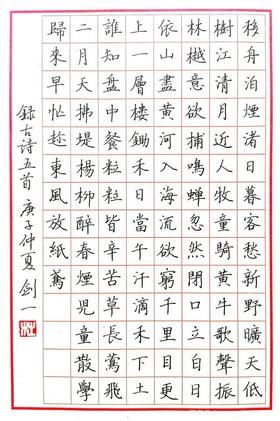 移舟泊煙渚日暮客愁新野曠天低
樹江清月近人牧童騎黃牛歌聲振
林樾意欲捕鳴蟬忽然閉口立白日
依山盡黃河入海流欲窮千里目更
上一層樓鋤禾日當午汗滴禾下土
誰知盤中餐粒粒皆辛苦草長鶯飛
二月天拂堤楊柳醉春煙兒童散學
歸來早忙趁東風放紙鳶
録古詩五首 庚子仲夏 劍一